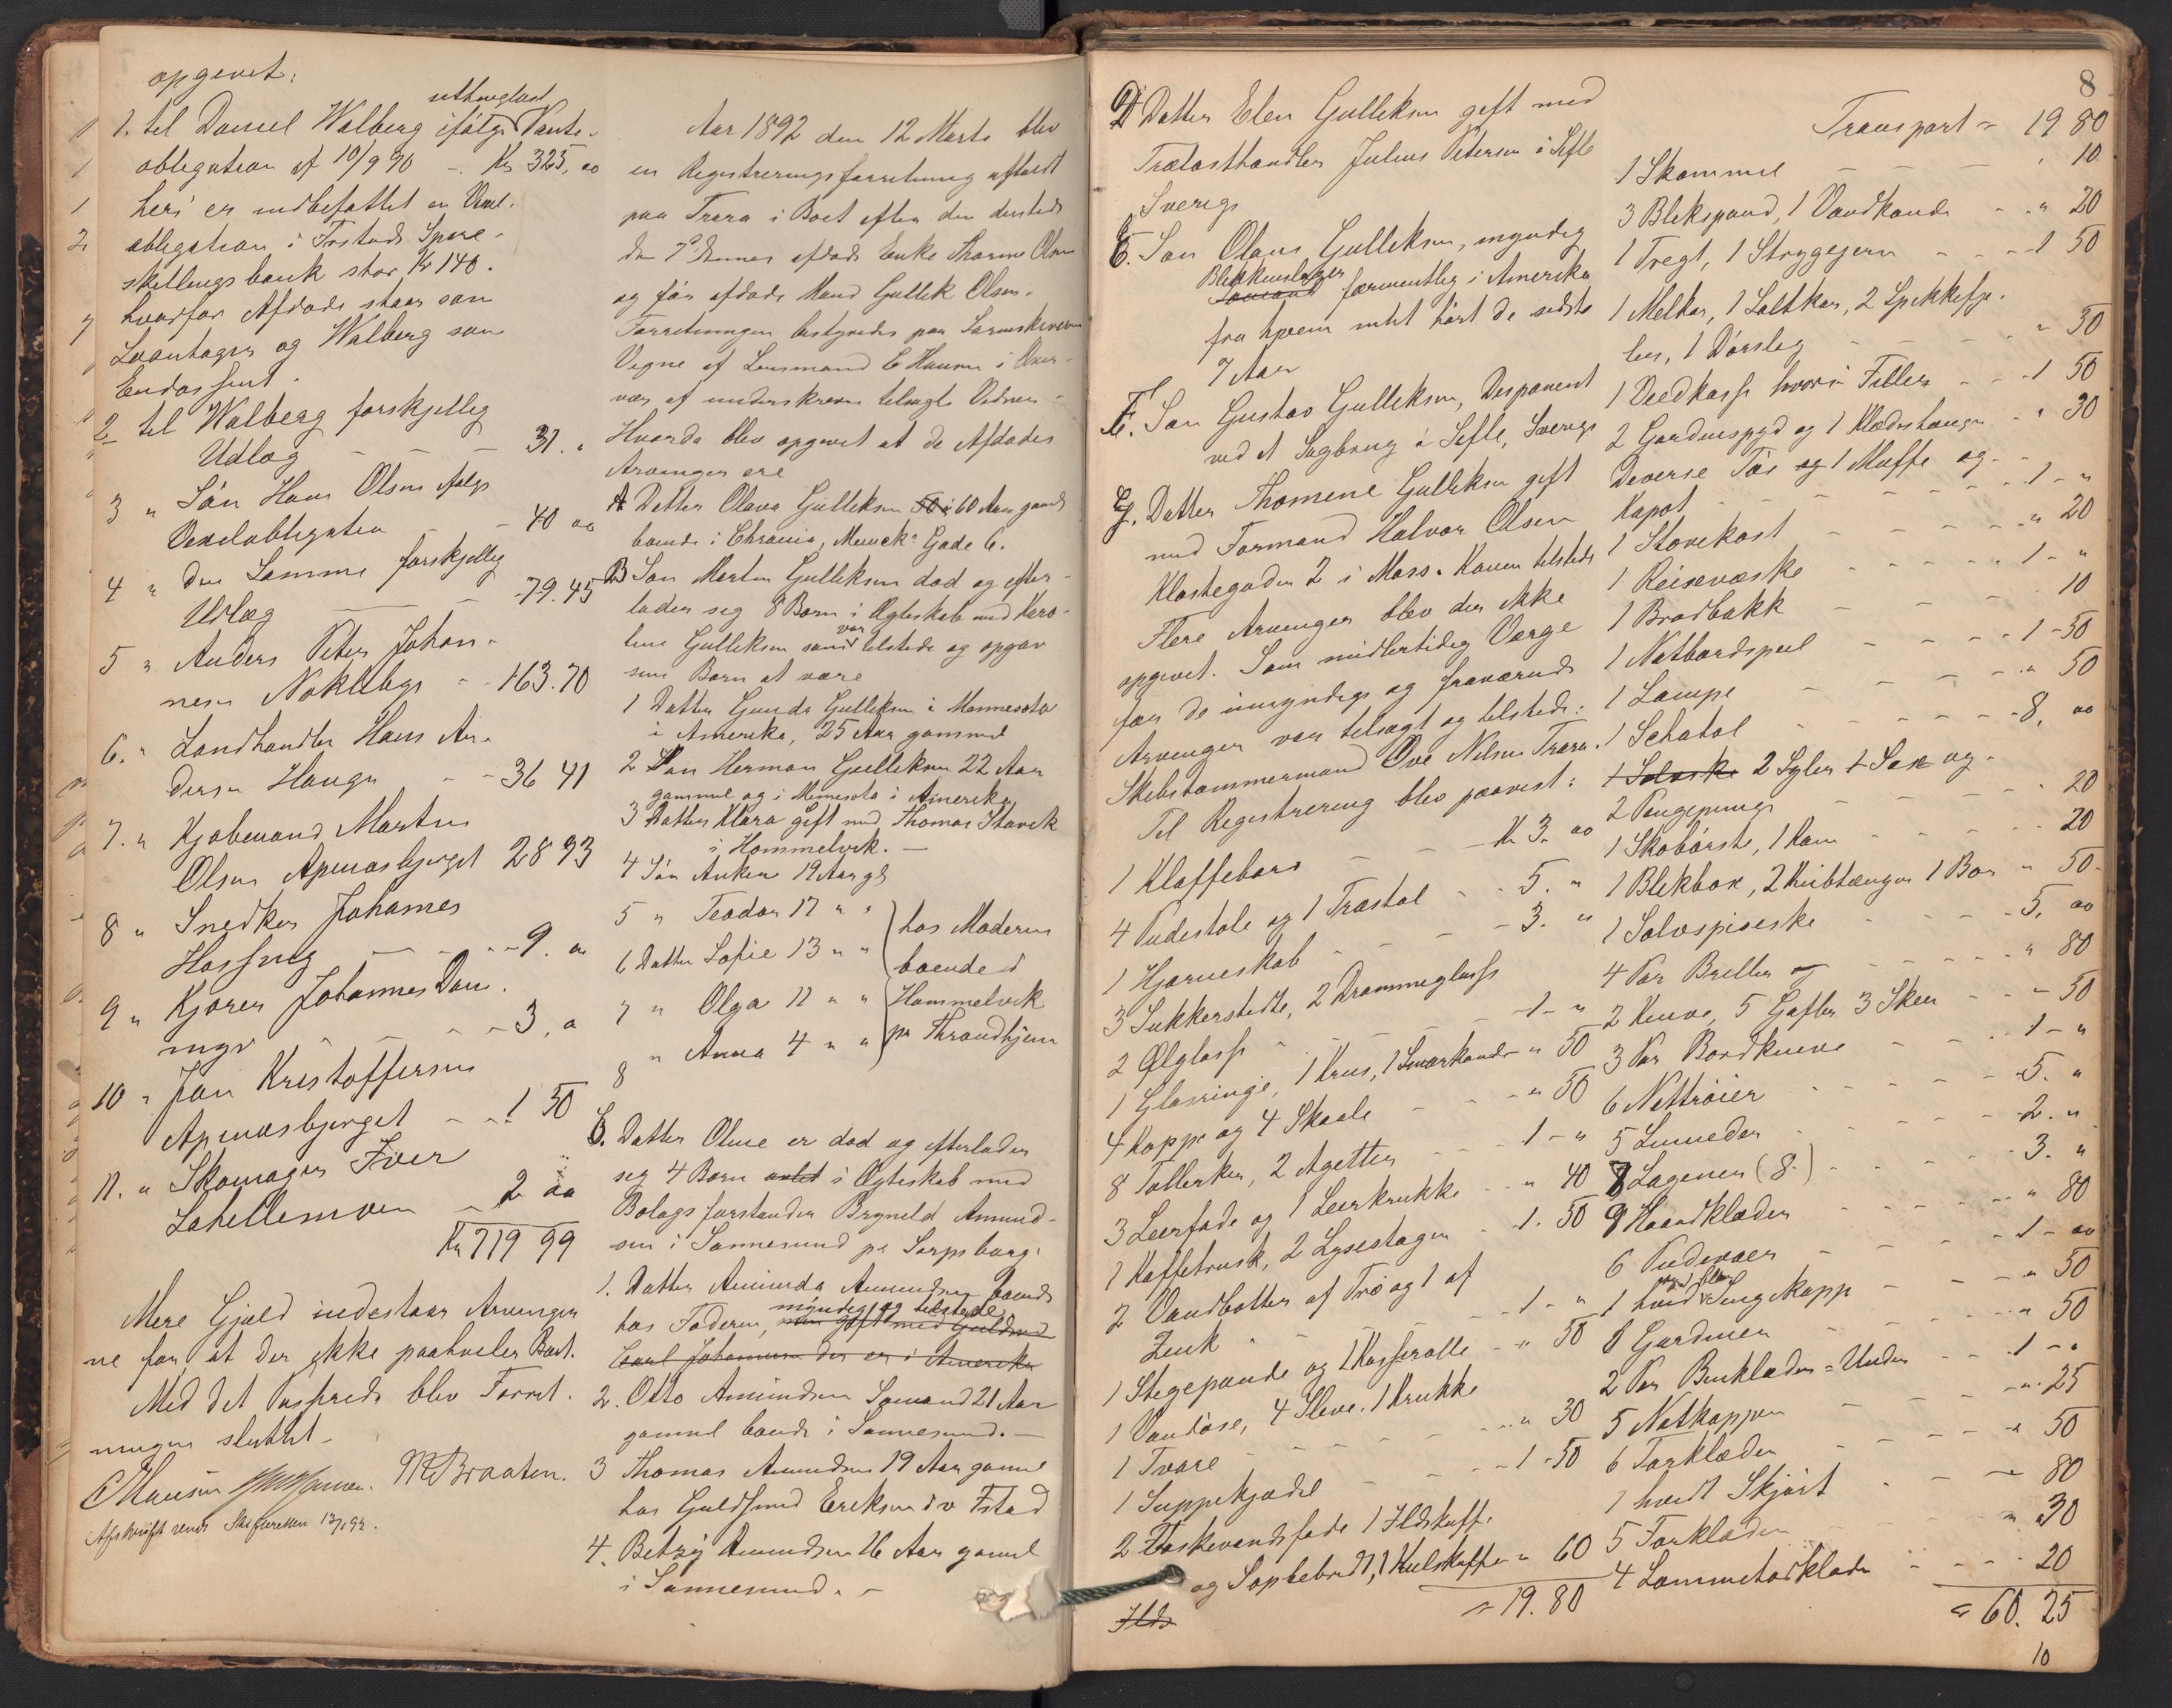 opgivet:
1. til Daniel Walberg ifølge uthinglæst Pante-
obligation af 10/9 90 -. Kr 325, 00
heri er indbefattet en Vexel-
obligation i Frstads Spare-
skillingsbank stor Kr 140.
hvorfor Afdøde staar som
Laantager og Walberg som
Endossent.
2 til Walberg forskjellig
Udlæg - - - 31. "
3 " Søn Hans Olsen ifølge
Vexelobligation - - 40 00
4 " Den Samme forskjellig
Udlæg - - - 79.45
5 " Anders Peter Johan-
nesen Nøkleby - - 163.70
6. " Landhandler Hans An-
dersen Hauge - - 36 41
7. " Kjøbmand Martin
Olsen Apenæsbjerget 28 93
8 " Snedker Johannes
Hasseng - - - 9. 00
9 " Kjører Johannes Dan-
inge - - - 3, 0
10 " Jan Kristoffersen
Apenæsbjerget - - 1 50
11. " Skomager Iver
Labellemoen - 2 00
Kr 719 99
Mere Gjæld indestaar Arvinger
ne for, at der ikke paahviler Boet.
Med det Passerede blev Forret-
ningen sluttet.
C Hansen MBraaten.
Afskrift sendt Skifteretten 13/1 92.
Aar 1892 den 12 Marts blev
en Registreringsforretning afholdt
paa Trara i Boet efter den dersteds
den 7de dennes afdøde Enke Thorine Olsen
og før afdøde Mand Gullik Olsen.
Forretningen bestyredes paa Sorenskriverens
Vegne af Lensmand C Hansen i Over-
vær af underskrevne tilsagte Vidner.
Hvorda blev opgivet at de Afdødes
Arvinger ere
A Datter Olava Gulliksen 50 i 60 Aar gamel
boende i Chrania, Muncks Gade 6.
B Søn Martin Gulliksen død og efter-
lader seg 8 Børn i Ægteskab med Karo-
line Gulliksen som var tilstede og opgav
sine Børn at være
1 Datter Gunda Gulliksen i Mennesota
i Amerika, 25 Aar gammel
2 Søn Herman Gulliksen 22 Aar
gammel og i Menesota i Amerika
3 Datter Klara gift med Thomas Stavik
i Hommelvik. -
4 Søn Anken 19 Aar gl
5 " Teodor 17 " "
6 Datter Sofie 13 " "
7 " Olga 11 " "
8 " Anna 4 " "
hos Moderen
boende i
Hommelvik
pr Throndhjem
C. Datter Oline er død og efterlader
seg 4 Børn avlet i Ægteskab med
Bolags forstander Brynild Amund-
sen i Sannesund pr Sarpsborg.
1. Datter Aminda Amundsen boende
hos Faderen, myndig og tilstede
men gift med Guldsmed
Carl Johannesen der er i Amerika
2. Otto Amundsen Sømand 21 Aar
gammel boende i Sannesund. -
3 Thomas Amundsen 19 Aar gammel
hos Guldsmed Eriksen i Fstad
4. Betzy Amundsen 16 Aar gamel
i Sannesund. -
8
D Datter Elen Gulleksen gift med
Trælasthandler Julius Petersen i Sefle
Sverige
E. Søn Olaus Gulleksen, myndig
Blikkenslager Sømand formentlig i Amerika
fra hvem intet hørt de sidste
7 Aar
F. Søn Gustav Gulleksen, Disponent
ved et Sagbrug i Sefle, Sverige
G. Datter Thomine Gulleksen gift
med Formand Halvor Olsen
Klostegaden 2 i Moss. Konen tilstede
Flere Arvinger blev der ikke
opgivet. Som midlertidig Værge
for de umyndige og fraværende
Arvinger var tilsagt og tilstede:
Skibstømmermand Ove Nilsen Trara.
Til Registrering blev paavist:
1 Klaffebord - - Kr 3. 00
4 Pudestole og 1 Træstol - - 5. "
1 Hjørneskab - - - 3. "
3 Sukkerstette, 2 Drammeglass
2 Ølglass - - - 1 - "
1 Glasringe, 1 Krus, 1 Smørkande - " 50
4 Koppe og 4 Skaale - - " 50
8 Tallerker, 2 Asjetter - - 1 - "
3 Leerfade og 1 Leerkrukke - - " 40
1 Kaffetrusk, 2 Lysestager - 1. 50
2 Vandbøtter af Træ og 1 af
Zink - - - 1 - "
1 Stegepande og 1 Kasserolle - " 50
1 Vandøse, 4 Sleve. 1 Krukke
1 Tvare - - - " 30
1 Suppekjedel - - - 1 - 50
2 Vaskevandsfade 1 Ildskuffe
og Sopbebredt, 1 Kulskuffe " 60
Ilds
= 19. 80
Transport = 19 80
1 Skammel - - - " 10
3 Blekspand, 1 Vandkande - - " 20
1 Tregt, 1 Strygejern - - - 1 50
1 Melkar, 1 Saltkar, 2 Spekkefje-
ler, 1 Dørslag - - - " 30
1 Vedkasse hvori Filler - - 1 50
2 Gardinspyd og 1 Klædeshænger - " 30
Diverse Tøi og 1 Muffe og
Kapot - - - 1 - "
1 Stovekost - - - " 20
1 Reisevæske - - - 1 - "
1 Brødbakk - - - 10
1 Natbordspeil - - - 1 - 50
1 Lampe - - - " 50
1 Schatol - - - 8. 00
1 Solaske 2 Syler 1 Sax og
2 Pengepunge - - - " 20
1 Skobørste, 1 Kam - - - 20
1 Blekbox, 2 Knibtænger 1 Bor " 50
1 Sølvspiseske - - - 5. 00
4 Par Briller - - - " 80
2 Knive, 5 Gafler 3 Skeer - - " 50
3 Par Bordknive - - - 1 - "
6 Nattrøier - - - 5. "
5 Linneder - - - 2. "
8 Lagener (8-) - - - 3. "
9 Haandklæder - - - " 80
6 Pudevaer - - - 1 - 00
1 hvid Sengekappe - - - " 50
8 Gardiner - - - " 50
2 Par Benklæder = Under - - 1 - "
5 Natkapper - - - " 25
6 Tørklæder - - - " 50
1 hvidt Skjørt - - - 80
5 Forklæder - - - " 30
4 Lommetørklæder - - - 20
= 60. 25
10